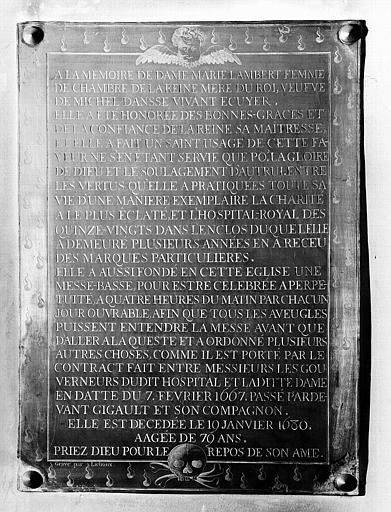 A LA MEMOIRE DE DAME MARIE LAMBERT FEMME
DE CHAMBRE DE LA REINE MERE DU ROI, VEUFVE
DE MICHEL DANSSE VIVANT ECUYER.
ELLE A ETE HONOREE DES BONNES-GRACES ET
DE LA CONFIANCE DE LA REINE SA MAITRESSE,
ET ELLE A FAIT UN SAINT USAGE DE CETTE FA-
VEUR NE S'EN ETANT SERVIE QUE POR LA GLOIRE
DE DIEU ET LE SOULAGEMENT D'AUTRUI. ENTRE
LES VERTUS QU'ELLE A PRATIQUEES TOUTE SA
VIE D'UNE MANIERE EXEMPLAIRE LA CHARITE
A LE PLUS ECLATE, ET L'HOSPITAL-ROYAL DES
QUINZE-VINGTS DANS L'ENCLOS DUQUEL ELLE
A DEMEURE PLUSIEURS ANNEES EN A RECEU
DES MARQUES PARTICULIERES.
ELLE A AUSSI FONDE EN CETTE EGLISE UNE
MESSE-BASSE, POUR ESTRE CELEBREE A PERPE-
TUITE, A QUATRE HEURES DU MATIN PAR CHACUN
JOUR OUVRABLE, AFIN QUE TOUS LES AVEUGLES
PUISSENT ENTENDRE LA MESSE AVANT QUE
D'ALLER A LA QUESTE ET A ORDONNE PLUSIEURS
AUTRES CHOSES, COMME IL EST PORTE PAR LE
CONTRACT FAIT ENTRE MESSIEURS LES GOU-
VERNEURS DUDIT HOSPITAL ET LADITTE DAME
EN DATTE DU 7. FEVRIER 1667. PASSE PARDE-
VANT GIGAULT ET SON COMPAGNON.
ELLE EST DECEDÉE LE 19 JANVIER 1680.
AAGEE DE 76 ANS.
PRIEZ DIEU POUR LE REPOS DE SON AME.
Gravé par